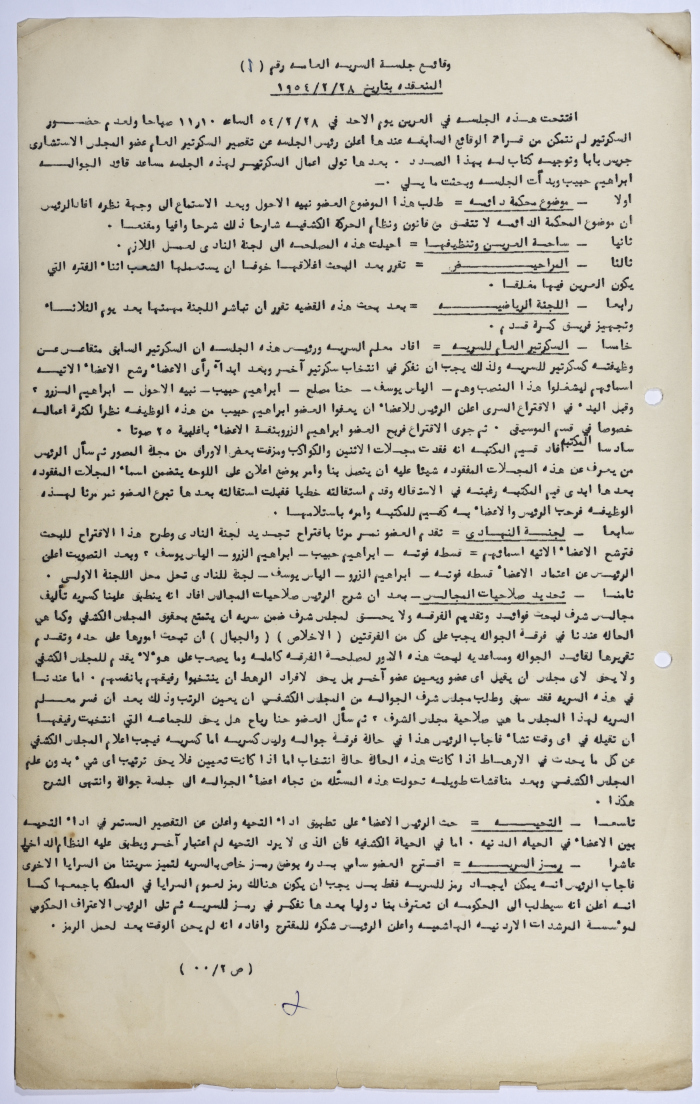 وقائع جلسة السريه العامه رقم (١)
المنعقده بتاريخ ١٩٥٤/٢/٢٨
افتتحت هذه الجلسه في العرين يوم الاحد في ٥٤/٢/٢٨ الساعه ١١,١٠ صباحا ولعدم حضور
السكرتير لم نتمكن من قراءة الوقائع السابقه عندها اعلن رئيس الجلسه عن تقصير السكرتير العام عضو المجلس الاستشارى
جريس بابا وتوجيه كتاب لسه بهذا الصدد ٠ بعدها تولى اعمال السكرتير لهذه الجلسه مساعد قائد الجواله
ابراهيم حبيب وبدأت الجلسه وبحثت ما يلي ٠ــ
اولا ــ موضوع محكمة دائمه = طلب هذا الموضوع العضو نبيه الاحول وبعد الاستماع الى وجهة نظره افاد الرئيس
ان موضوع المحكمة الدائمه لا تتفق من قانون ونظام الحركة الكشفيه شارحا ذلك شرحا وافيا ومقنعا ٠
ثانيا ــ ساحة العرين وتنظيفها = احيلت هذه المصلحه الى لجنة النادى لعمل اللازم ٠
ثالثا ــ المراحيض = تقرر بعد البحث اغلاقها خوفا ان يستعملها الشعب اثناء الفتره التي
يكون العرين فيها مغلقا ٠
رابعا ــ اللجنة الرياضيه = بعد بحث هذه القضيه تقرر ان تباشر اللجنة مهمتها بعد يوم الثلاثاء
وتجهيز فريق كرة قدم ٠
خامسا ــ السكرتير العام للسريه = افاد معلم السريه ورئيس هذه الجلسه ان السكرتير السابق متقاعس عن
وظيفته كسكرتير للسريه ولذلك يجب ان نفكر في انتخاب سكرتير آخر وبعد ابداء رأى الاعضاء رشح الاعضاء الاتيه
اسمائهم ليشغلوا هذا المنصب وهم ــ الياس يوسف ــ حنا مصلح ــ ابراهيم حبيب ــ نبيه الاحول ــ ابراهيم الزرو ؟
وقبل البدء في الاقتراع السرى اعلن الرئيس للاعضاء ان يعفوا العضو ابراهيم حبيب من هذه الوظيفه نظرا لكثرة اعماله
خصوصا في قسم الموسيقى ٠ ثم جرى الاقتراع فربح العضو ابراهيم الزرو بثقة الاعضاء باغلبية ٢٥ صوتا ٠
سادسا ــ المكتبه افاد قسيم المكتبه انه فقدت مجلات الاثنين والكواكب ومزقت بعض الاوراق من مجلة المصور ثم سأل الرئيس
من يعرف عن هذه المجلات المفقوده شيئا عليه ان يتصل بنا وامر بوضع اعلان على اللوحه يتضمن اسماء المجلات المفقوده
بعدها ابدى قيم المكتبه رغبته في الاستقاله وقدم استقالته خطيا فقبلت استقالته بعدها تبرع العضو نمر مرثا لهذه
الوظيفه فرحب الرئيس والاعضاء به كقسيم للمكتبه وامره باستلامها ٠
سابعا ــ لجنة النادى = تقدم العضو نمر مرثا باقتراح تجديد لجنة النادى وطرح هذا الاقتراح للبحث
فترشح الاعضاء الاتيه اسمائهم = قسطه فوته ــ ابراهيم حبيب ــ ابراهيم الزرو ــ الياس يوسف ؟ وبعد التصويت اعلن
الرئيس عن اعتماد الاعضاء قسطه فوته ــ ابراهيم الزرو ــ الياس يوسف ــ لجنة للنادى تحل محل اللجنة الاولى ٠
ثامنا ــ تحديد صلاحيات المجالس ــ بعد ان شرح الرئيس صلاحيات المجالس افاد انه ينطبق علينا كسريه تأليف
مجالس شرف لبحث فوائد وتقديم الفرقه ولا يحق لمجلس شرف ضمن سريه ان يتمتع بحقوق المجلس الكشفي وكما هي
الحاله عندنا في فرقة الجواله يجب على كل من الفرقتين (الاخلاص) (والجبال) ان تبحث امورها على حده وتقدم
تقريرها لقائد الجواله ومساعديه لبحث هذه الامور لصلحة الفرقه كامله وما يصعب على هؤلاء يقدم للمجلس الكشفي
ولا يحق لاى مجلس ان يقيل اى عضو ويعين عضو آخر بل يحق لافراد الرهط ان ينتخبوا رفيقهم بانفسهم ٠ اما عندنا
في هذه السريه فقد سبق وطلب مجلس شرف الجواله من المجلس الكشفي ان يعين الرتب وذلك بعد ان فسر معلم
السريه لهذا المجلس ما هي صلاحية مجلس الشرف ؟ ثم سأل العضو حنا رباح هل يحق للجماعه التي انتخبت رفيقها
ان تقيله في اى وقت تشاء فاجاب الرئيس هذا في حالة فرقة جواله وليس كسريه اما كسريه فيجب اعلام المجلس الكشفي
عن كل ما يحدث في الارهاط اذا كانت هذه الحالة حالة انتخاب اما اذا كانت تعيين فلا يحق ترتيب اى شيء بدون علم
المجلس الكشفي وبعد مناقشات طويله تحولت هذه المسئله من تجاه اعضاء الجواله الى جلسة جوالة وانتهى الشرح
هكذا ٠
تاسعا ــ التحيه = حث الرئيس الاعضاء على تطبيق اداء التحيه واعلن عن التقصير المستمر في اداء التحيه
بين الاعضاء في الحياه المدنيه ٠ اما في الحياة الكشفيه فان الذى لا يرد التحيه لم اعتبار آخر ويطبق عليه النظام الداخلي
عاشرا ــ رمز السريه = اقترح العضو سامي بدره بوضع رمز خاص بالسريه لتميز سريتنا من السرايا الاخرى
فاجاب الرئيس انه يمكن ايجاد رمز للسريه فقط بل يجب ان يكون هنالك رمز لعموم السرايا في المملكه باجمعها كما
انه اعلن انه سيطلب الى الحكومه ان تعترف بنا دوليا بعدها نفكر في رمز للسريه ثم تلى الرئيس الاعتراف الحكومي
لمؤسسة المرشدات الاردنيه الهاشميه واعلن الرئيس شكره للمقترح وافاده انه لم يحن الوقت بعد لحمل الرمز ٠
(ص ٢/٠٠)